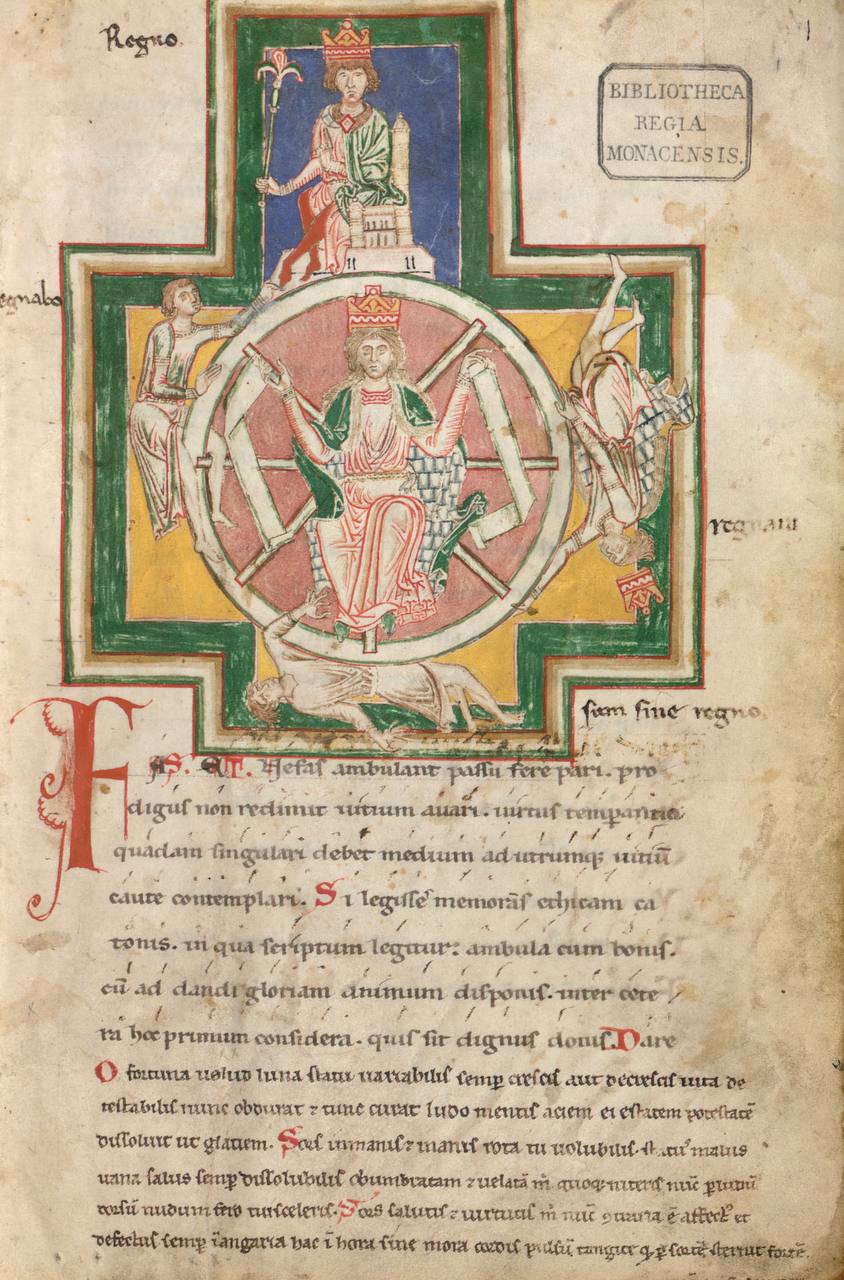 Regno.
BIBLIOTHECA
REGIA
MONACENSIS.
egnabo
regnaui
sum sine regno.
FAS. ET. Nefas ambulant passu fere pari. pro
digus non redimit uitium auari. uirtus temperantia
quadam singulari debet medium ad utrumq; uitiū
caute contemplari. Si legisse memoras ethicam ca
tonis. in qua scriptum legitur: ambula cum bonis.
cū ad dandi gloriam animum disponis. inter cete
ra hoc primum considera. quis sit dignus donis. Dare
O fortuna uelud luna statu uariabilis semp crescis aut decrescis uita de
testabilis nunc obdurat ⁊ tunc curat ludo mentis aciem egestatem potestatē
dissoluit ut glaciem. Sors inmanis ⁊ inanis rota tu uolubilis. statꝰ malus
uana salus semp dissolubilis obumbratam ⁊ uelatā m̄ quoq; niteris nūc p ludū
dorsū nudum fero tui sceleris. Sors salutis ⁊ uirtutis m̄ nūc ꝯtraria ē affectꝰ et
defectus semp ī angaria hac ī hora sine mora cordis pulsū tangite qd p sortē sternit fortē.